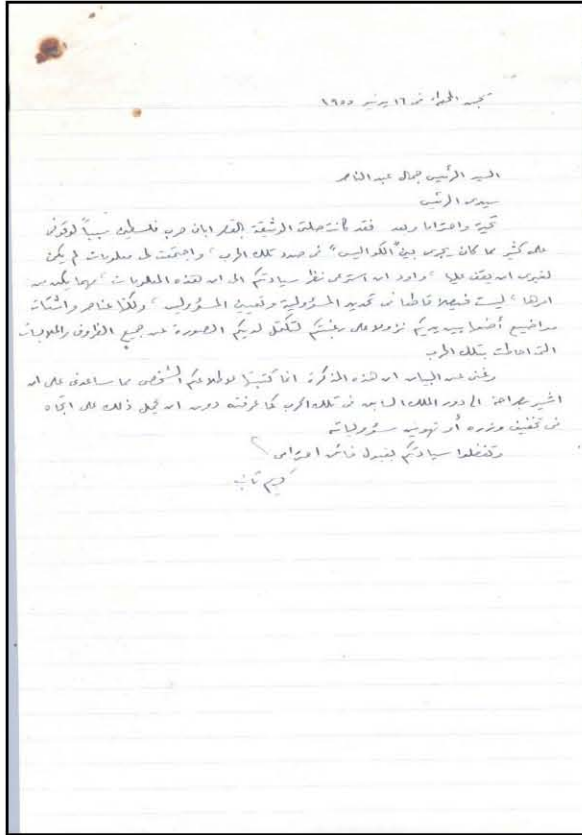 سجن الحضرة فى ١٦ يونيو ١٩٥٥
السيد الرئيس جمال عبد الناصر
سيدى الرئيس
تحية واحتراما وبعد فقد كانت صلتى الوثيقة بالقصر ابان حرب فلسطين سبباً لوقوفى
على كثير مما كان يجرى بين "الكواليس" فى صدد تلك الحرب، واجتمعت لى معلومات لم يكن
لغيرى ان يقف عليها، واود ان استرعى نظر سيادتكم الى ان هذه المعلومات، مهما يكن من
امرها، ليست فيصلا قاطعا فى تحديد المسؤولية وتعيين المسؤولين، ولكنها عناصر واشتات
مواضيع أضعها بين يديكم نزولا على رغبتكم لتكتمل لديكم الصورة عن جميع الظروف والملابسات
التى احاطت بتلك الحرب
وغنى عن البيان ان هذه المذكرة انما كتبتها لاطلاعكم الشخصى مما ساعدنى على ان
اشير بصراحة الى دور الملك السابق فى تلك الحرب كما عرفته دون ان يحمل ذلك على اتجاه
فى تخفيف وزره أو تهوين مسئولياته
وتفضلوا سيادتكم بقبول فائق احترامى
كريم ثابت